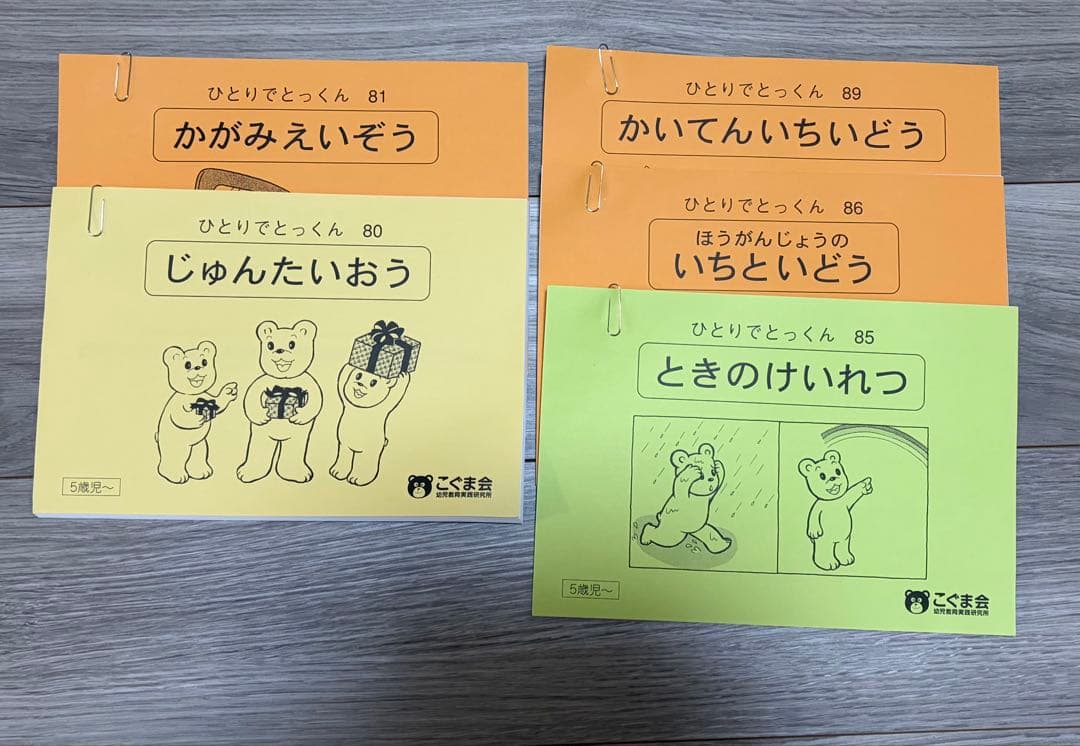 ひとりでとっくん 81
かがみえいぞう
ひとりでとっくん 80
じゅんたいおう
5歳児～
こぐま会
幼児教育実践研究所
ひとりでとっくん 89
かいてんいちいどう
ひとりでとっくん 86
ほうがんじょうの
いちといどう
ひとりでとっくん 85
ときのけいれつ
5歳児～
こぐま会
幼児教育実践研究所